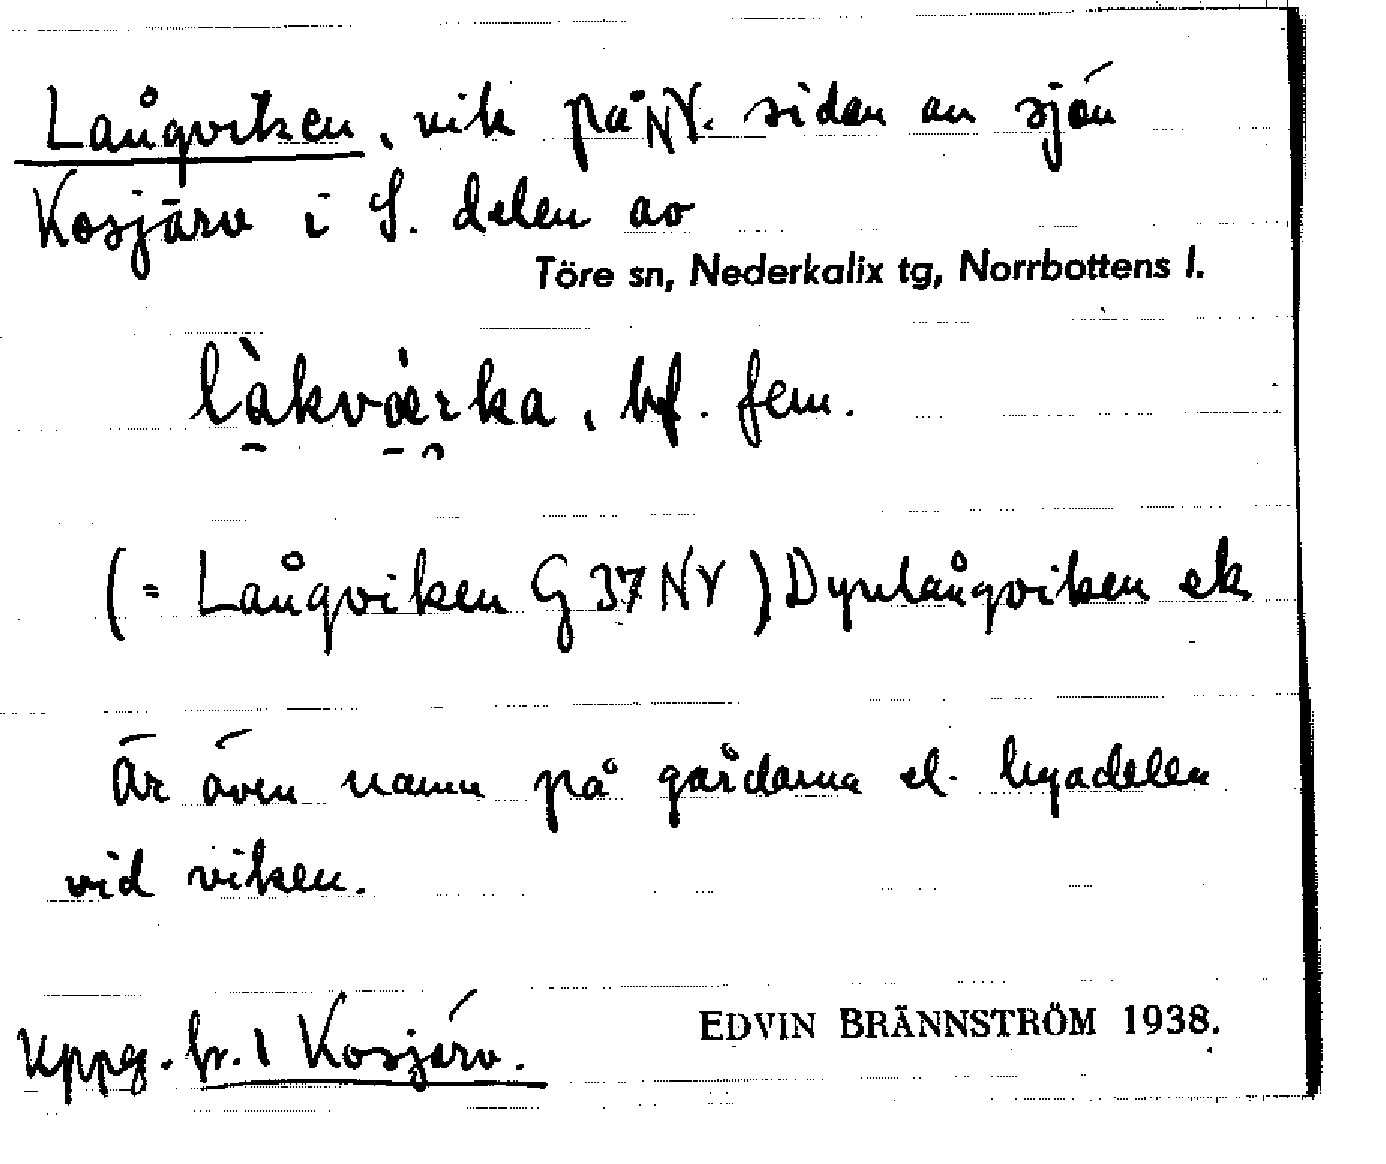 Långviken, vik på NV. sidan av sjön
Kosjärv i S. delen av
Töre sn, Nederkalix tg, Norrbottens l.
bf. fem.
(= Långviken G 37 NV) ek
Är även namn på gårdarna el. byadelen
vid viken.
Uppg. fr. 1 Kosjärv.
EDVIN BRÄNNSTRÖM 1938.